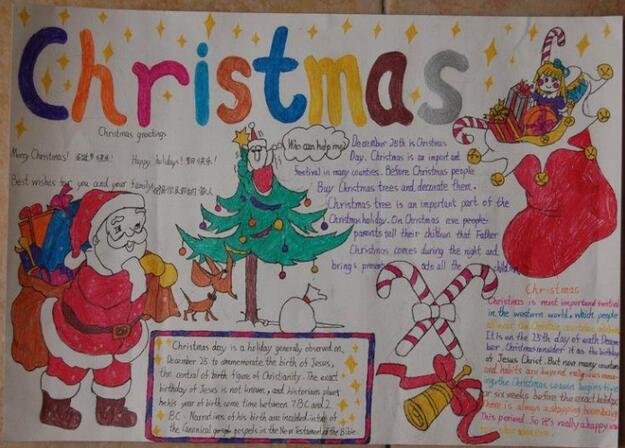 Christmas
Christmas greetings
Merry Christmas! 圣诞节快乐!
Happy holidays! 节日快乐!
Best wishes for you and your family
Who can help me?
December 25th is Christmas
Day. Christmas is an important
festival in many counties. Before Christmas people
Buy Christmas trees and decorate them.
Christmas tree is an important part of the
Christmas holiday. On Christmas eve people
parents tell their children that Father
Christmas comes during the night and
brings all the children
Christmas
Christmas is most important festival
in the western world. which people
all over the Christian
It is on the 25th day of each Decem
ber. Christmas consider it as the birthday
of Jesus Christ. But now many customs
and habits are beyond religious
the Christmas season begins five
or six weeks before the exact holiday
There is always a shopping boom
This period. So it's really a happy
"Christmas day is a holiday generally observed on,
December 25 to commemorate the birth of Jesus,
the central of birth figure of Christianity. The exact
birthday of Jesus is not known, and historians place
his year of birth some time between 7 BC and 2
BC. Narratives of his birth are included in
the Canonical gospels in the New Testament of the Bible.